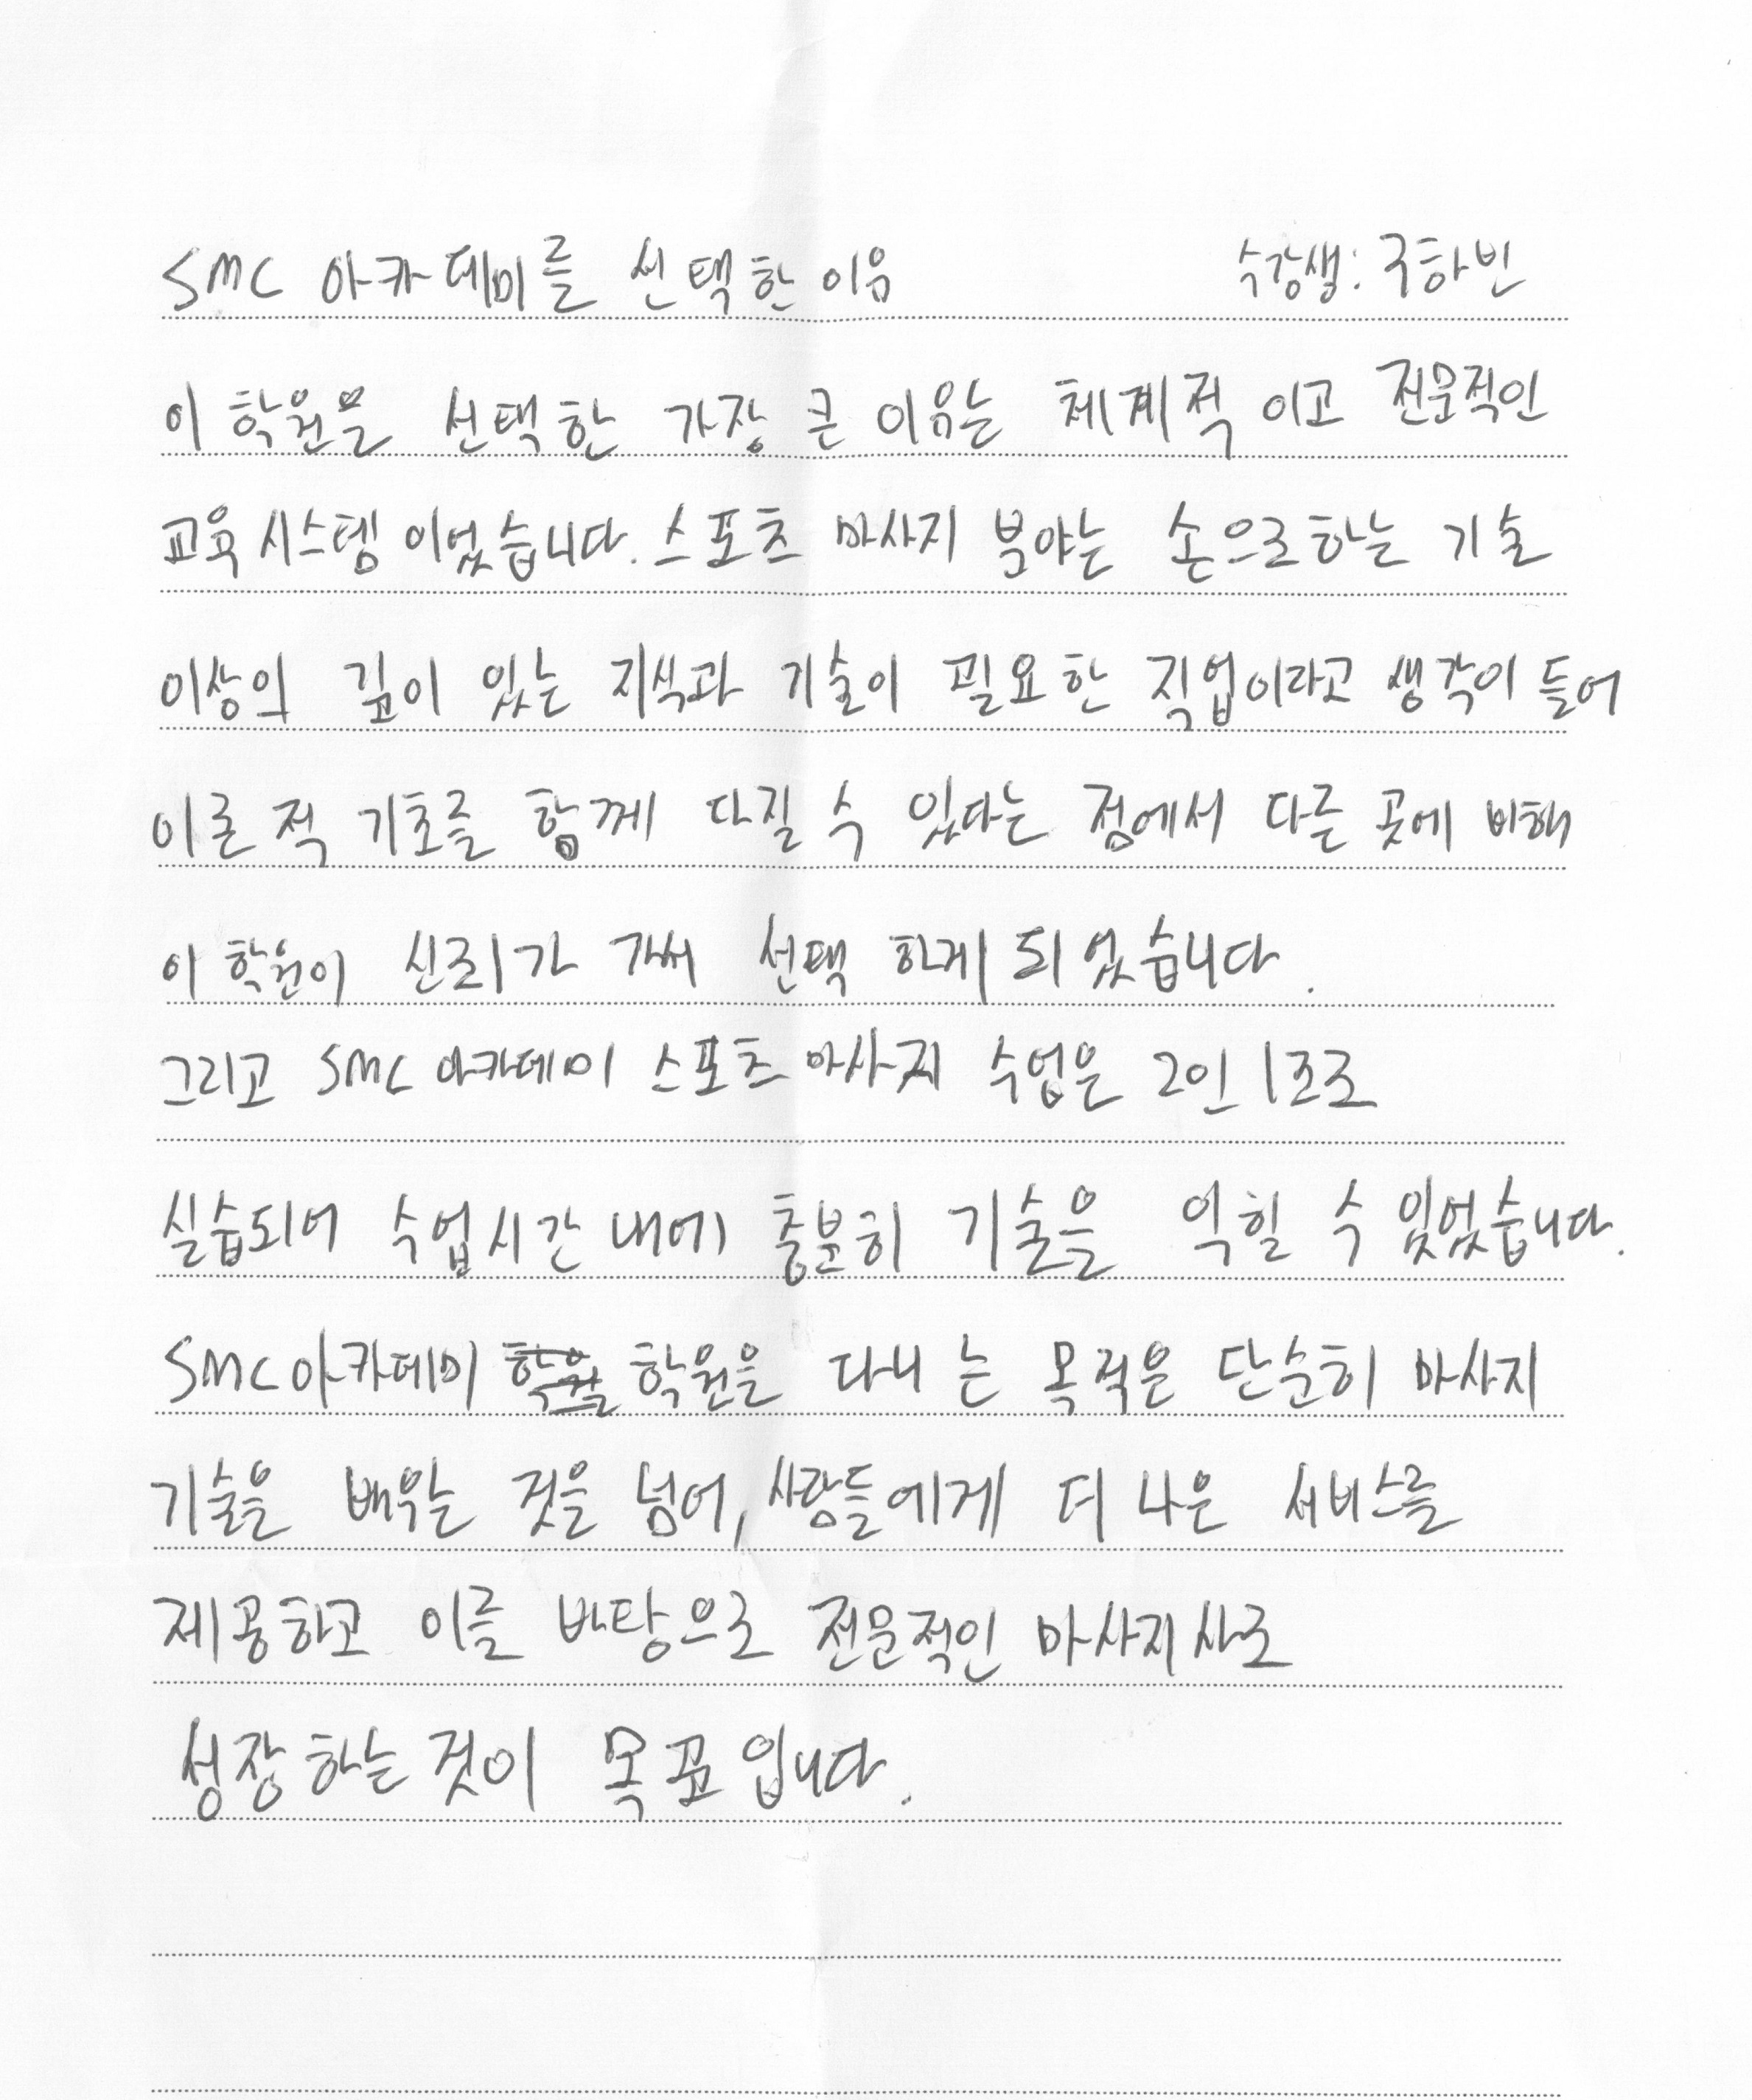 SMC 아카데미를 선택한 이유 수강생: 구하빈
이 학원을 선택한 가장 큰 이유는 체계적 이고 전문적인
교육 시스템 이었습니다. 스포츠 마사지 분야는 손으로 하는 기술
이상의 깊이 있는 지식과 기술이 필요한 직업이라고 생각이 들어
이론 적 기초를 함께 다질 수 있다는 점에서 다른 곳에 비해
이 학원이 신뢰가 가서 선택 하게 되었습니다.
그리고 SMC 아카데미 스포츠 마사지 수업은 2인 1조로
실습되어 수업시간 내에 충분히 기술을 익힐 수 있었습니다.
SMC아카데미 학원을 다니는 목적은 단순히 마사지
기술을 배우는 것을 넘어, 사람들에게 더 나은 서비스를
제공하고 이를 바탕으로 전문적인 마사지사로
성장하는 것이 목표입니다.